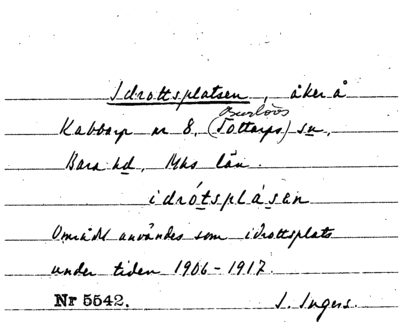 Idrottsplatsen, åker å
Burlövs
Kabbarp nr 8, (Tottarps) sn,
Bara hd, Mhs län.
idrótsplásen
Området användes som idrottsplats
under tiden 1906-1917.
Nr 5542. I. Ingers.